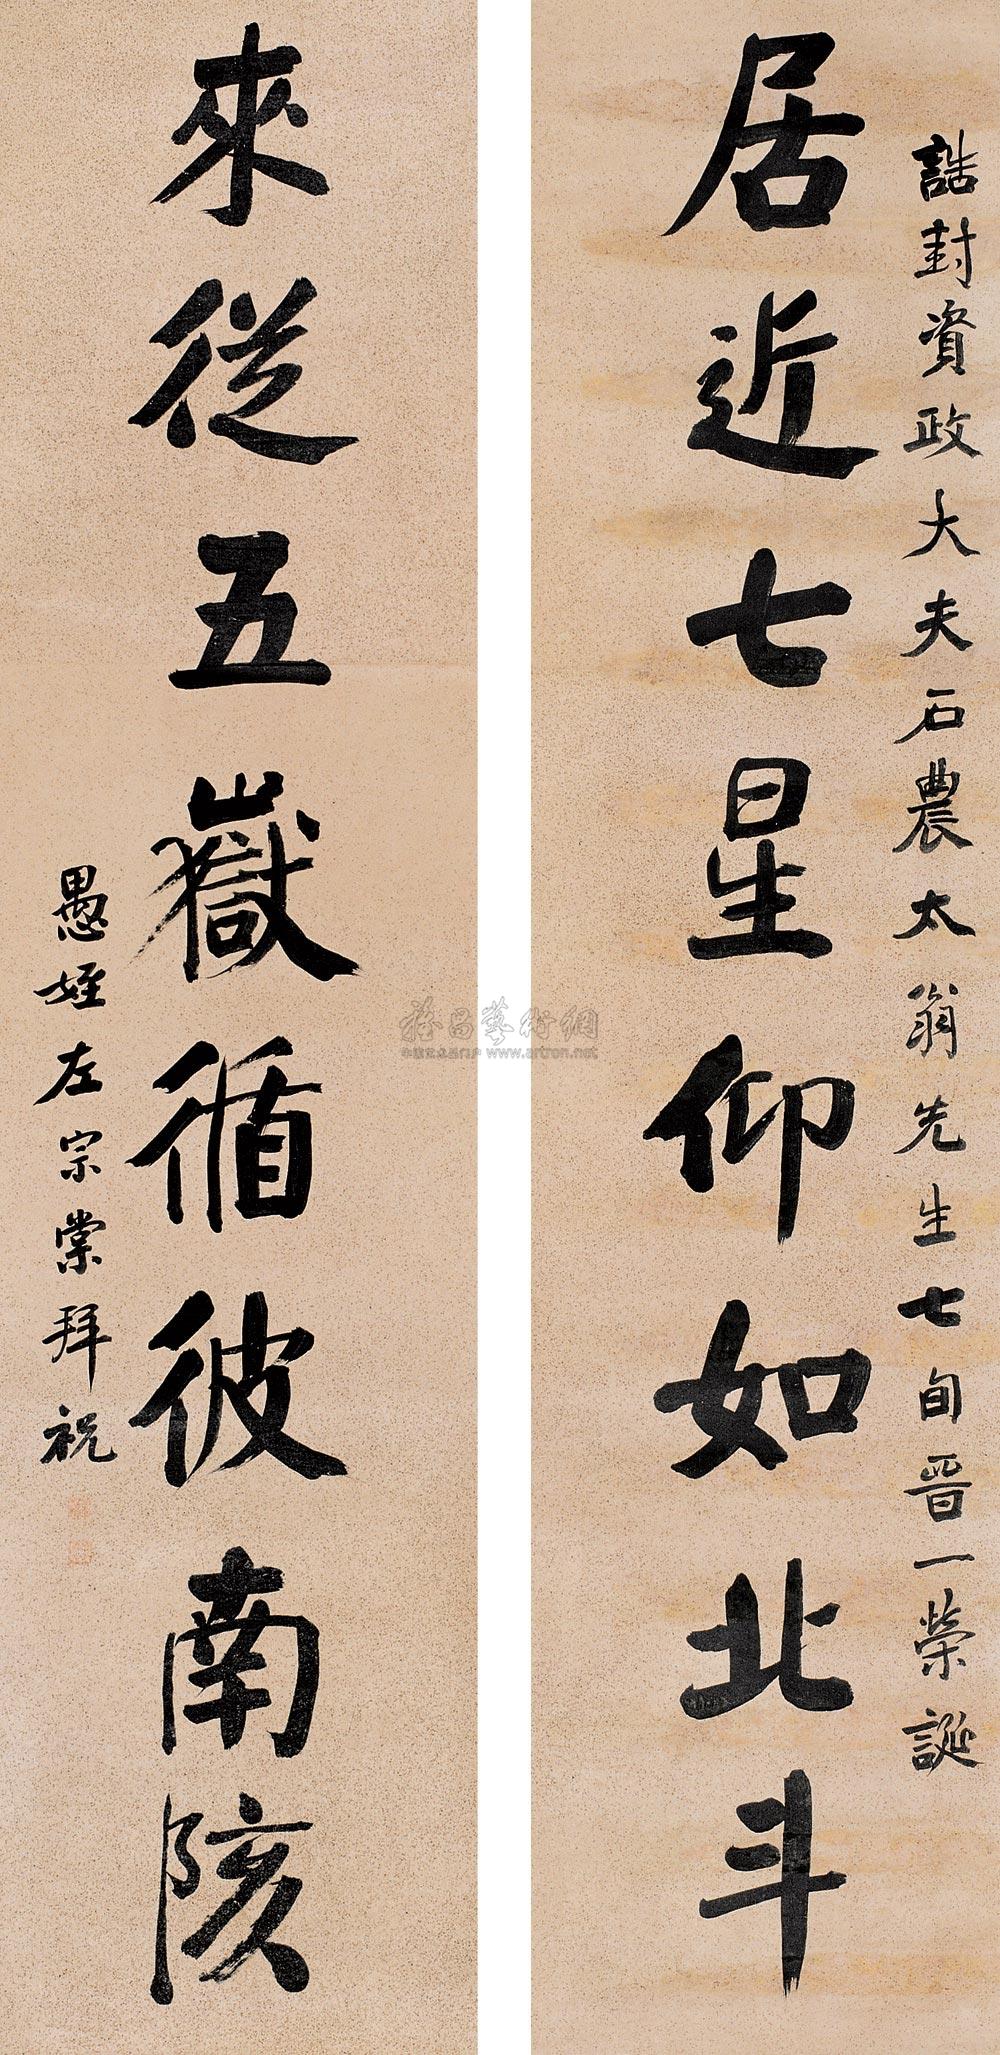 誥封資政大夫石農太翁先生七旬晉一榮誕
居近七星仰如北斗
來從五嶽循彼南陔
愚姪左宗棠拜祝
www.artron.net